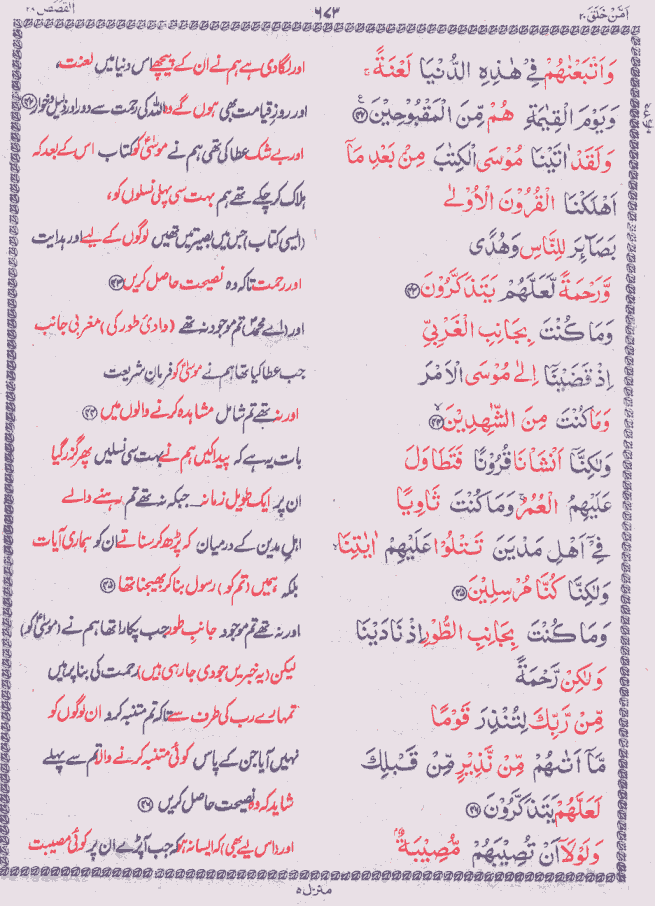 اَمَّنْ خَلَقَ ٢٠ ٦٧٣ القصص ٢٨
وَاَتْبَعْنٰهُمْ فِیْ هٰذِهِ الدُّنْیَا لَعْنَةً ۚ اور لگادی ہے ہم نے ان کے پیچھے اس دنیا میں لعنت،
وَیَوْمَ الْقِیٰمَةِ هُمْ مِّنَ الْمَقْبُوْحِیْنَ ﴿۴۲﴾ اور روزِ قیامت بھی ہوں گے وہ اللہ کی رحمت سے دور اور ذلیل و خوار ﴿۴۲﴾
وَلَقَدْ اٰتَیْنَا مُوْسَی الْكِتٰبَ مِنْۢ بَعْدِ مَاۤ اور بے شک عطا کی تھی ہم نے موسیٰؑ کو کتاب اس کے بعد کہ
اَهْلَكْنَا الْقُرُوْنَ الْاُوْلٰی ہلاک کر چکے تھے ہم بہت سی پہلی نسلوں کو،
بَصَآئِرَ لِلنَّاسِ وَهُدًی (ایسی کتاب) جس میں بصیرتیں تھیں لوگوں کے لیے اور ہدایت
وَّرَحْمَةً لَّعَلَّهُمْ یَتَذَكَّرُوْنَ ﴿۴۳﴾ اور رحمت تاکہ وہ نصیحت حاصل کریں ﴿۴۳﴾
وَمَا كُنْتَ بِجَانِبِ الْغَرْبِیِّ اور (اے محمدؐ) تم موجود نہ تھے (وادئ طور کی) مغربی جانب
اِذْ قَضَیْنَاۤ اِلٰی مُوْسَی الْاَمْرَ جب عطا کیا تھا ہم نے موسیٰؑ کو فرمانِ شریعت
وَمَا كُنْتَ مِنَ الشّٰهِدِیْنَ ﴿۴۴﴾ اور نہ تھے تم شامل مشاہدہ کرنے والوں میں ﴿۴۴﴾
وَلٰكِنَّاۤ اَنْشَاْنَا قُرُوْنًا فَتَطَاوَلَ بات یہ ہے کہ پیدا کیں ہم نے بہت سی نسلیں پھر گزر گیا
عَلَیْهِمُ الْعُمُرُ ۚ وَمَا كُنْتَ ثَاوِیًا ان پر ایک طویل زمانہ۔ جبکہ نہ تھے تم رہنے والے
فِیْۤ اَهْلِ مَدْیَنَ تَتْلُوْا عَلَیْهِمْ اٰیٰتِنَا ۙ اہلِ مدین کے درمیان کہ پڑھ کر سناتے ان کو ہماری آیات
وَلٰكِنَّا كُنَّا مُرْسِلِیْنَ ﴿۴۵﴾ بلکہ ہمیں (تم کو) رسول بنا کر بھیجنا تھا ﴿۴۵﴾
وَمَا كُنْتَ بِجَانِبِ الطُّوْرِ اِذْ نَادَیْنَا اور نہ تھے تم موجود جانبِ طور جب پکارا تھا ہم نے (موسیٰؑ کو)
وَلٰكِنْ رَّحْمَةً لیکن (یہ خبریں جو دی جارہی ہیں) رحمت کی بنا پر ہیں
مِّنْ رَّبِّكَ لِتُنْذِرَ قَوْمًا تمہارے رب کی طرف سے تاکہ تم متنبہ کرو ان لوگوں کو
مَّاۤ اَتٰىهُمْ مِّنْ نَّذِیْرٍ مِّنْ قَبْلِكَ نہیں آیا جن کے پاس کوئی متنبہ کرنے والا تم سے پہلے
لَعَلَّهُمْ یَتَذَكَّرُوْنَ ﴿۴۶﴾ شاید کہ وہ نصیحت حاصل کریں ﴿۴۶﴾
وَلَوْلَاۤ اَنْ تُصِیْبَهُمْ مُّصِیْبَةٌۢ اور (اس لیے بھی) کہ ایسا نہ ہو کہ جب آپڑے ان پر کوئی مصیبت
منزل ۵